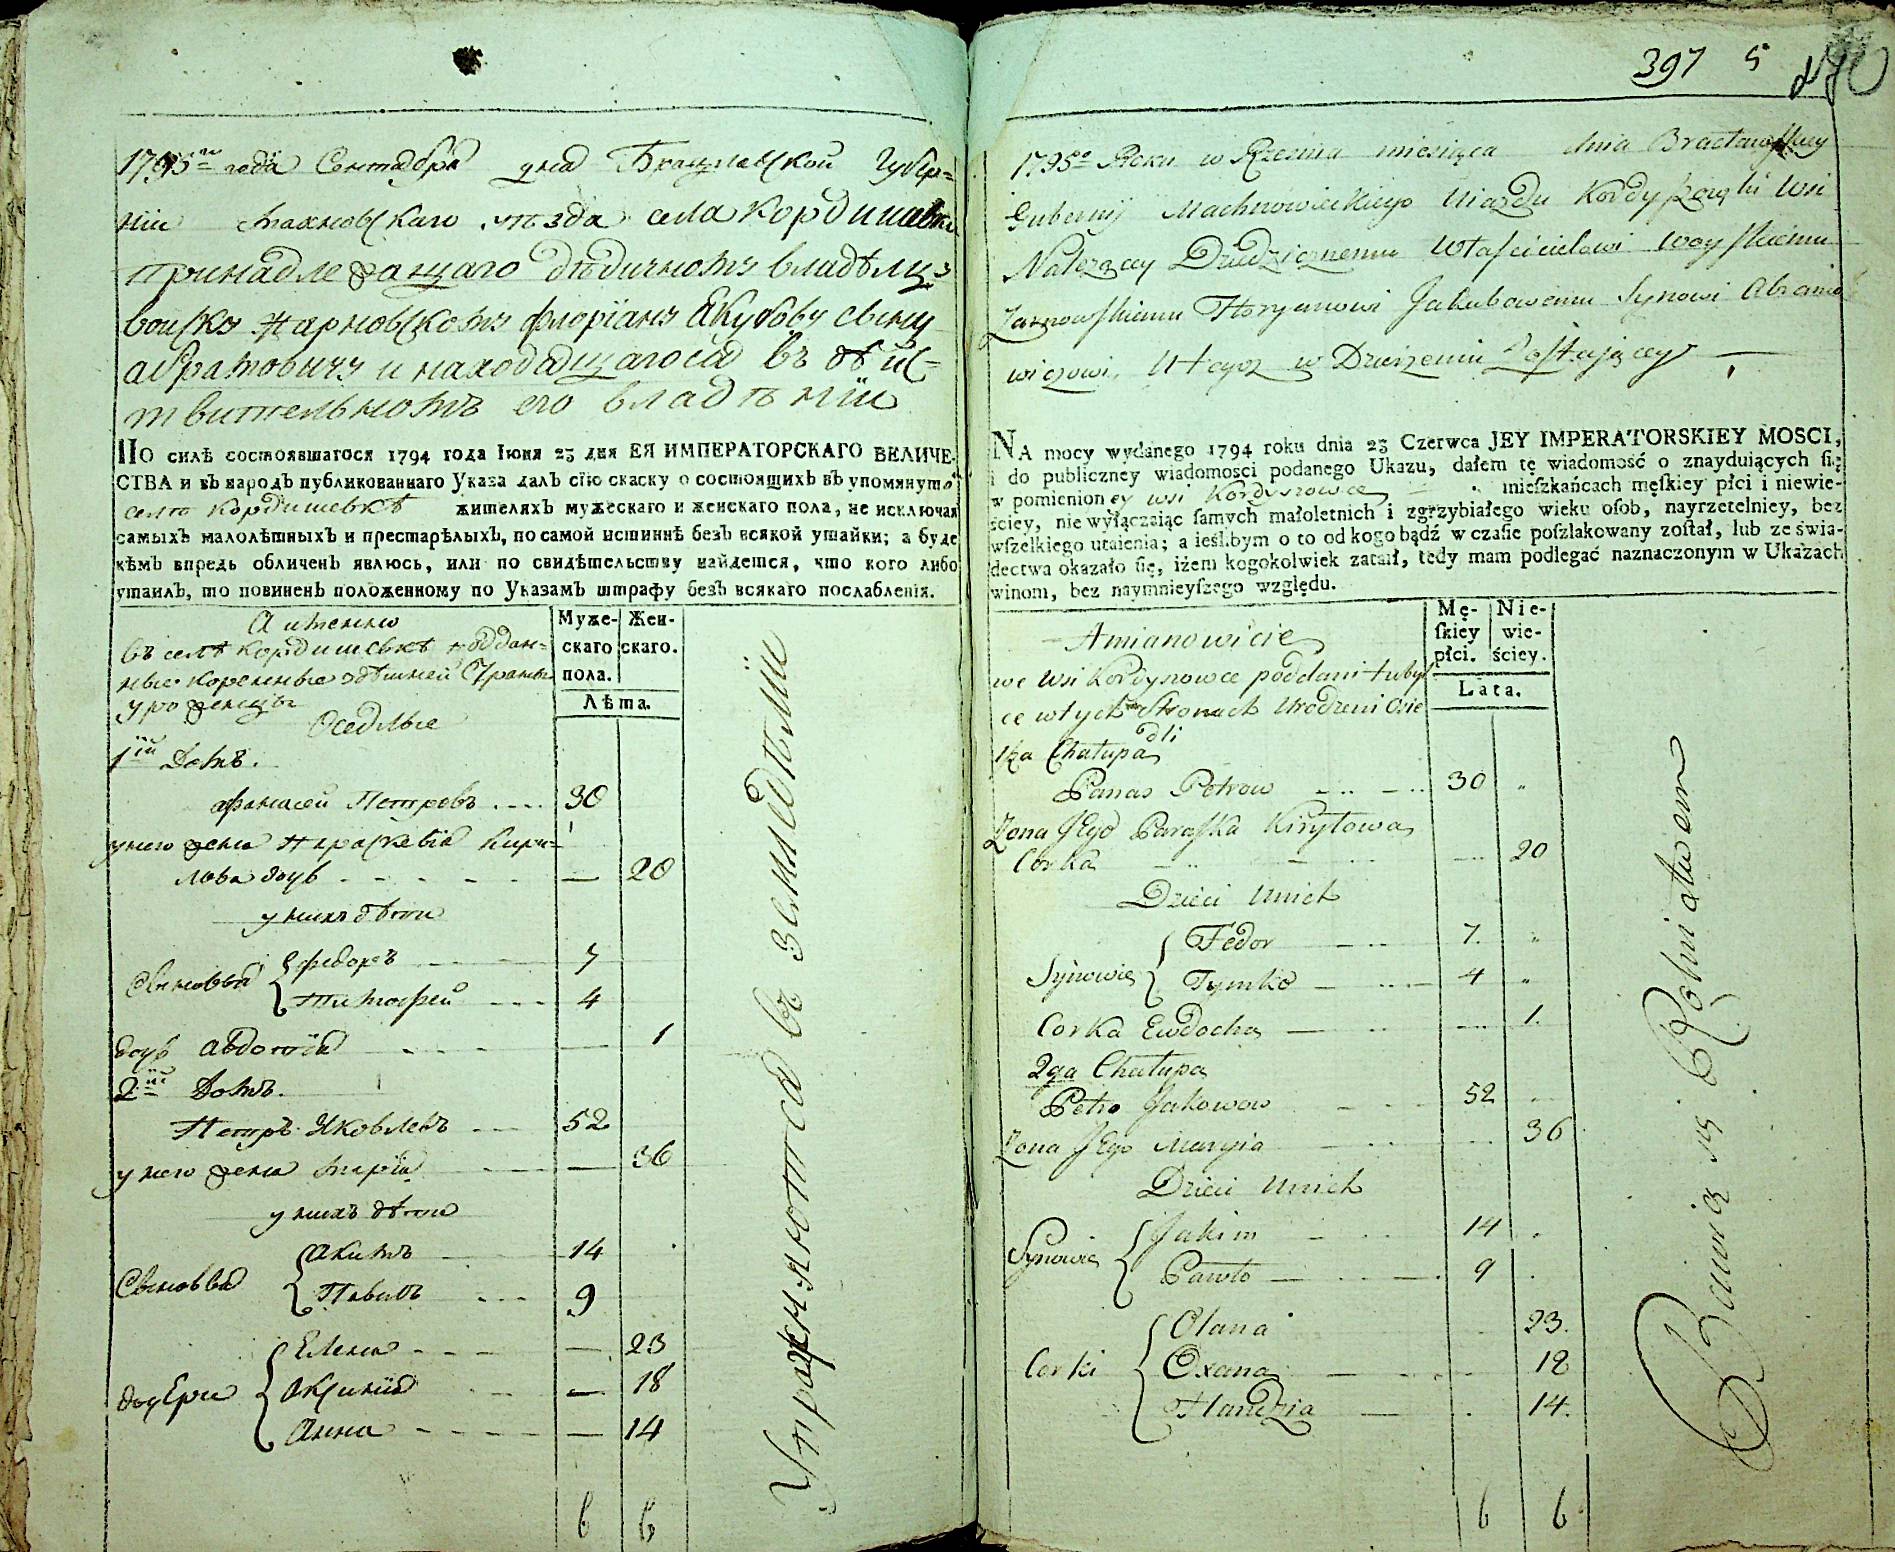 1795го года Сентября дня Брацлавской Губер=
нiи Махновскаго уѣзда села Кордишевки
принадлежащаго дѣдичномъ владѣлцу
войску Жарновскомъ Флорiану Якубову сыну
абрамовичу и находящагося въ дѣйс=
твительномъ его владѣнiи
ПО силѣ состоявшагося 1794 года Iюня 23 дня ЕЯ ИМПЕРАТОРСКАГО ВЕЛИЧЕ-
СТВА и въ народъ публикованнаго Указа далъ сiю скаску о состоящихъ въ упомянуто
селѣ Кордишевкѣ жителяхъ мужескаго и женскаго пола, не исключая
самыхъ малолѣтныхъ и престарѣлыхъ, по самой истиннѣ безъ всякой утайки; а буде
кѣмъ впредь обличенъ явлюсь, или по свидѣтельству найдется, что кого либо
утаилъ, то повиненъ положенному по Указамъ штрафу безъ всякаго послабленiя.
А имянно
въ селѣ Кордишевкѣ поддан=
ные коренные здѣшней Страны
уроженцы
Оседлые
Муже-
скаго
пола.
Жен-
скаго.
Лѣта.
1ій Домъ.
Афанасей Петровъ 30
у него жена Параскевiя Кири=
лова дочь 20
у нихъ дѣти
Сыновья
Федоръ 7
Тимофей 4
дочь Авдотiя 1
2ій Домъ.
Петръ Яковлевъ 52
у него жена Марiя 36
у нихъ дѣти
Сыновья
Якимъ 14
Павилъ 9
дочери
Елена 23
Аксинiя 18
Анна 14
6 6
Упражняются въ земледѣлiи
397 5
1795go Roku w Rzesnia miesiąca dnia Bracławskiey
Gubernij Machnowieckiego Uiazdu Kordyszowki wsi
Należącey Dziedzicznemu Właścicielowi Woyskiemu
Żarnowskiemu Floryanowi Jakubowemu Synowi Abramo
wiczowi, w Dzierżeniu Zostaiącey
NA mocy wydanego 1794 roku dnia 23 Czerwca JEY IMPERATORSKIEY MOSCI,
i do publiczney wiadomości podanego Ukazu, dałem tę wiadomość o znayduiących ſię
w pomienioney wsi Kordyszowce mieſzkańcach męſkiey płci i niewie-
ściey, nie wyłączaiąc ſamych małoletnich i zgrzybiałego wieku oſob, nayrzetelniey, bez
wſzelkiego utaienia; a ieślibym o to od kogo bądź w czaſie poſzlakowany zoſtał, lub ze świa-
dectwa okazało ſię, iżem kogokolwiek zataił, tedy mam podlegać naznaczonym w Ukazach
winom, bez naymnieyſzego względu.
Amianowicie
we wsi Kordyszowce poddani tubyl
ce w tych Stronach Urodzeni Osie
dli
Mę-
ſkiey
płci.
Nie-
wie-
ściey.
Lata.
1sza Chałupa
Panas Petrow 30
Żona Jego Paraska Kiryłowa
Corka 20
Dzieci Unich
Synowie
Fedor 7.
Tymko 4
Corka Ewdocha 1.
2ga Chałupa
Petro Jakowow 52
Żona Jego Maryia 36
Dzieci Unich
Synowie
Jakim 14
Pawło 9
Corki
Olana 23.
Oxana 18
Handzia 14.
6 6
Bawią się Rolnictwem